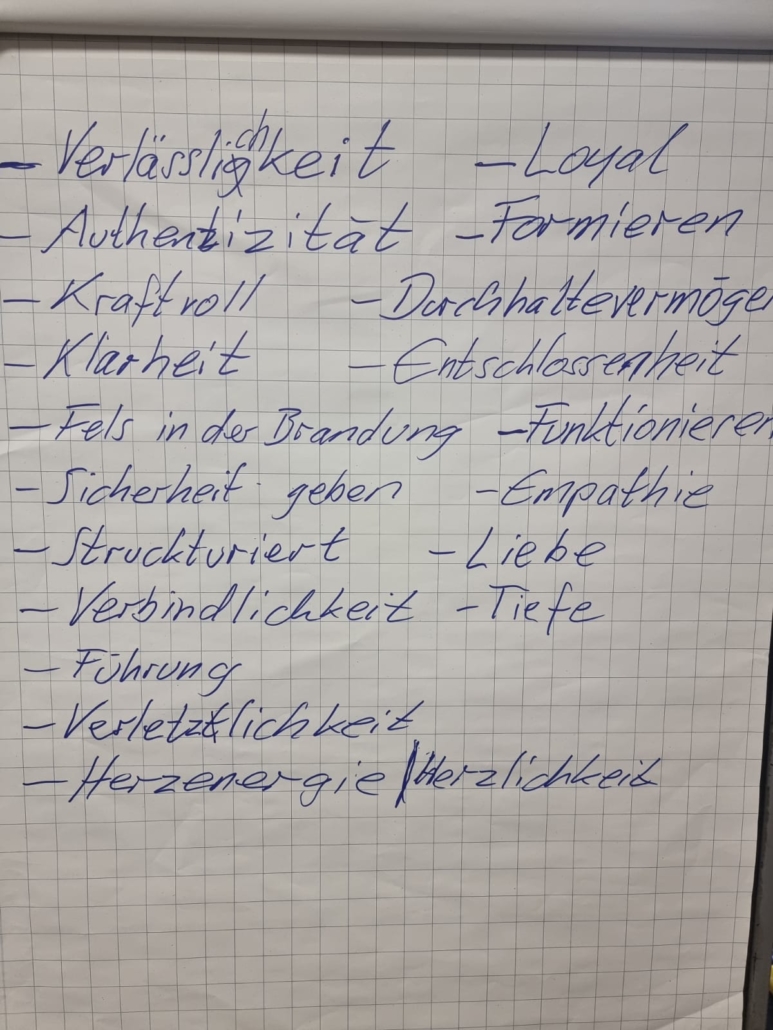 - Verlässlichkeit - Loyal
- Authentizität - Formieren
- Kraftvoll - Durchhaltevermögen
- Klarheit - Entschlossenheit
- Fels in der Brandung - Funktionieren
- Sicherheit geben - Empathie
- Struckturiert - Liebe
- Verbindlichkeit - Tiefe
- Führung
- Verletztlichkeit
- Herzenergie / Herzlichkeit